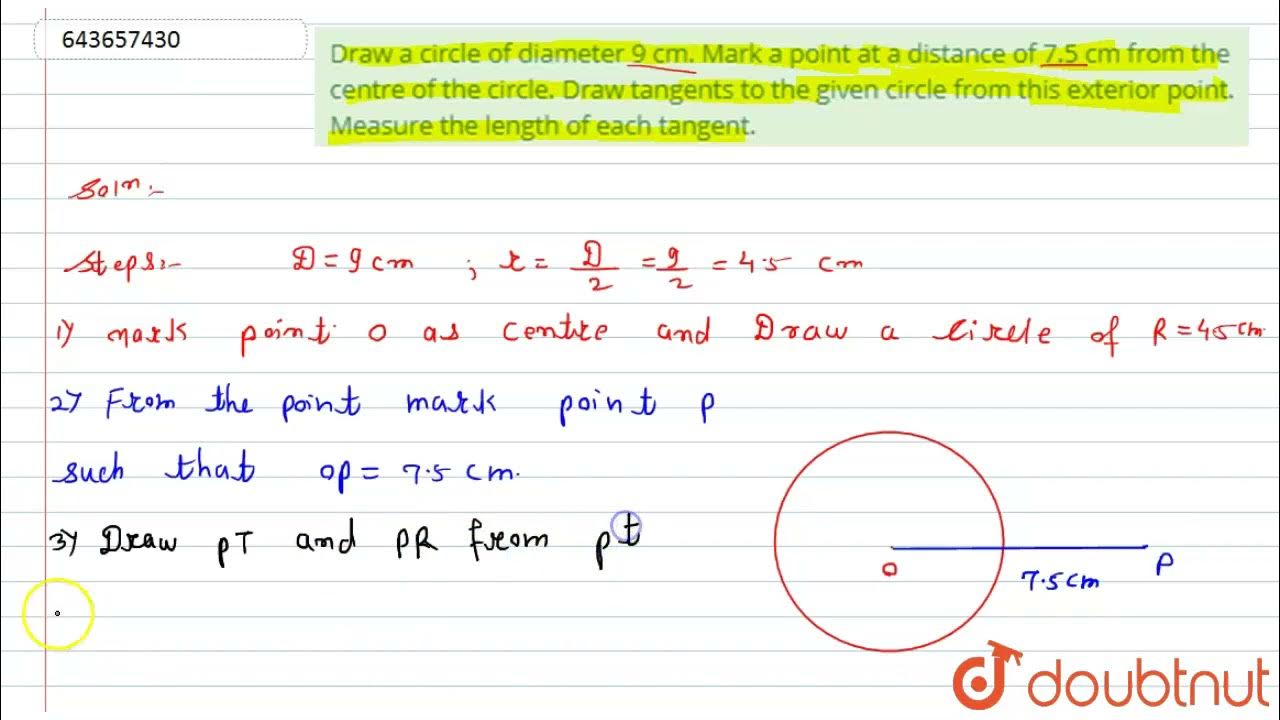 643657430
Draw a circle of diameter 9 cm. Mark a point at a distance of 7.5 cm from the
centre of the circle. Draw tangents to the given circle from this exterior point.
Measure the length of each tangent.
Soln:-
Steps:- D = 9 cm ; r = D/2 = 9/2 = 4.5 cm
1) mark point O as centre and Draw a circle of R = 4.5 cm
2) From the point mark point P
such that OP = 7.5 cm.
3) Draw PT and PR from pt
O
7.5 cm
P
doubtnut